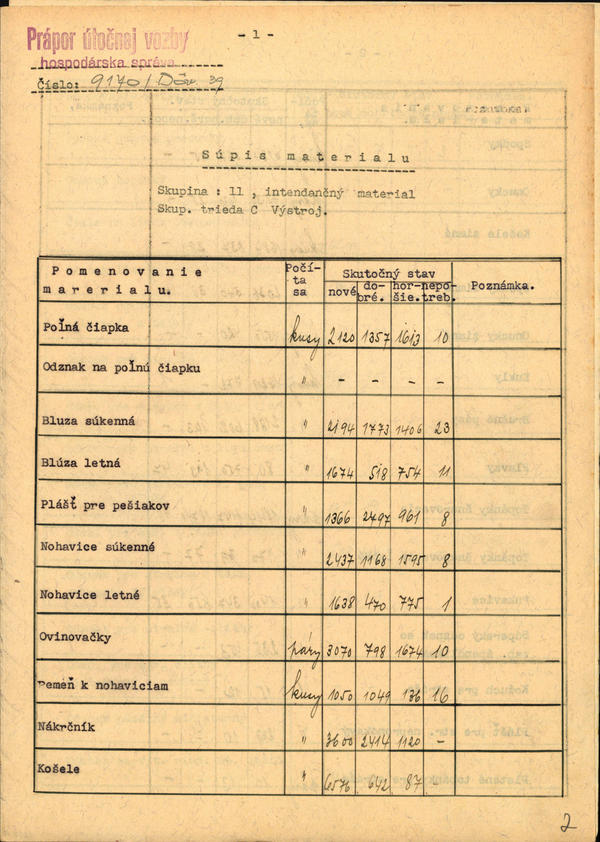 - 1 -
Prápor útočnej vozby
hospodárska správa
Číslo: 9170/Dôv. 39
Súpis materialu
Skupina : 11 , intendančný material
Skup. trieda C Výstroj.
Pomenovanie marerialu. Počí-ta sa Skutočný stav Poznámka.
nové do-bré. hor-šie. nepo-treb.
Poľná čiapka kusy 2120 1357 1613 10
Odznak na poľnú čiapku " - - - -
Bluza súkenná " 2194 1773 1406 23
Blúza letná " 1674 518 754 11
Plášť pre pešiakov " 1366 2497 961 8
Nohavice súkenné " 2437 1168 1595 8
Nohavice letné " 1638 470 775 1
Ovinovačky páry 3070 798 1674 10
Remeň k nohaviciam kusy 1050 1049 136 16
Nákrčník " 3600 2414 1120 -
Košele " 6576 642 87 -
2